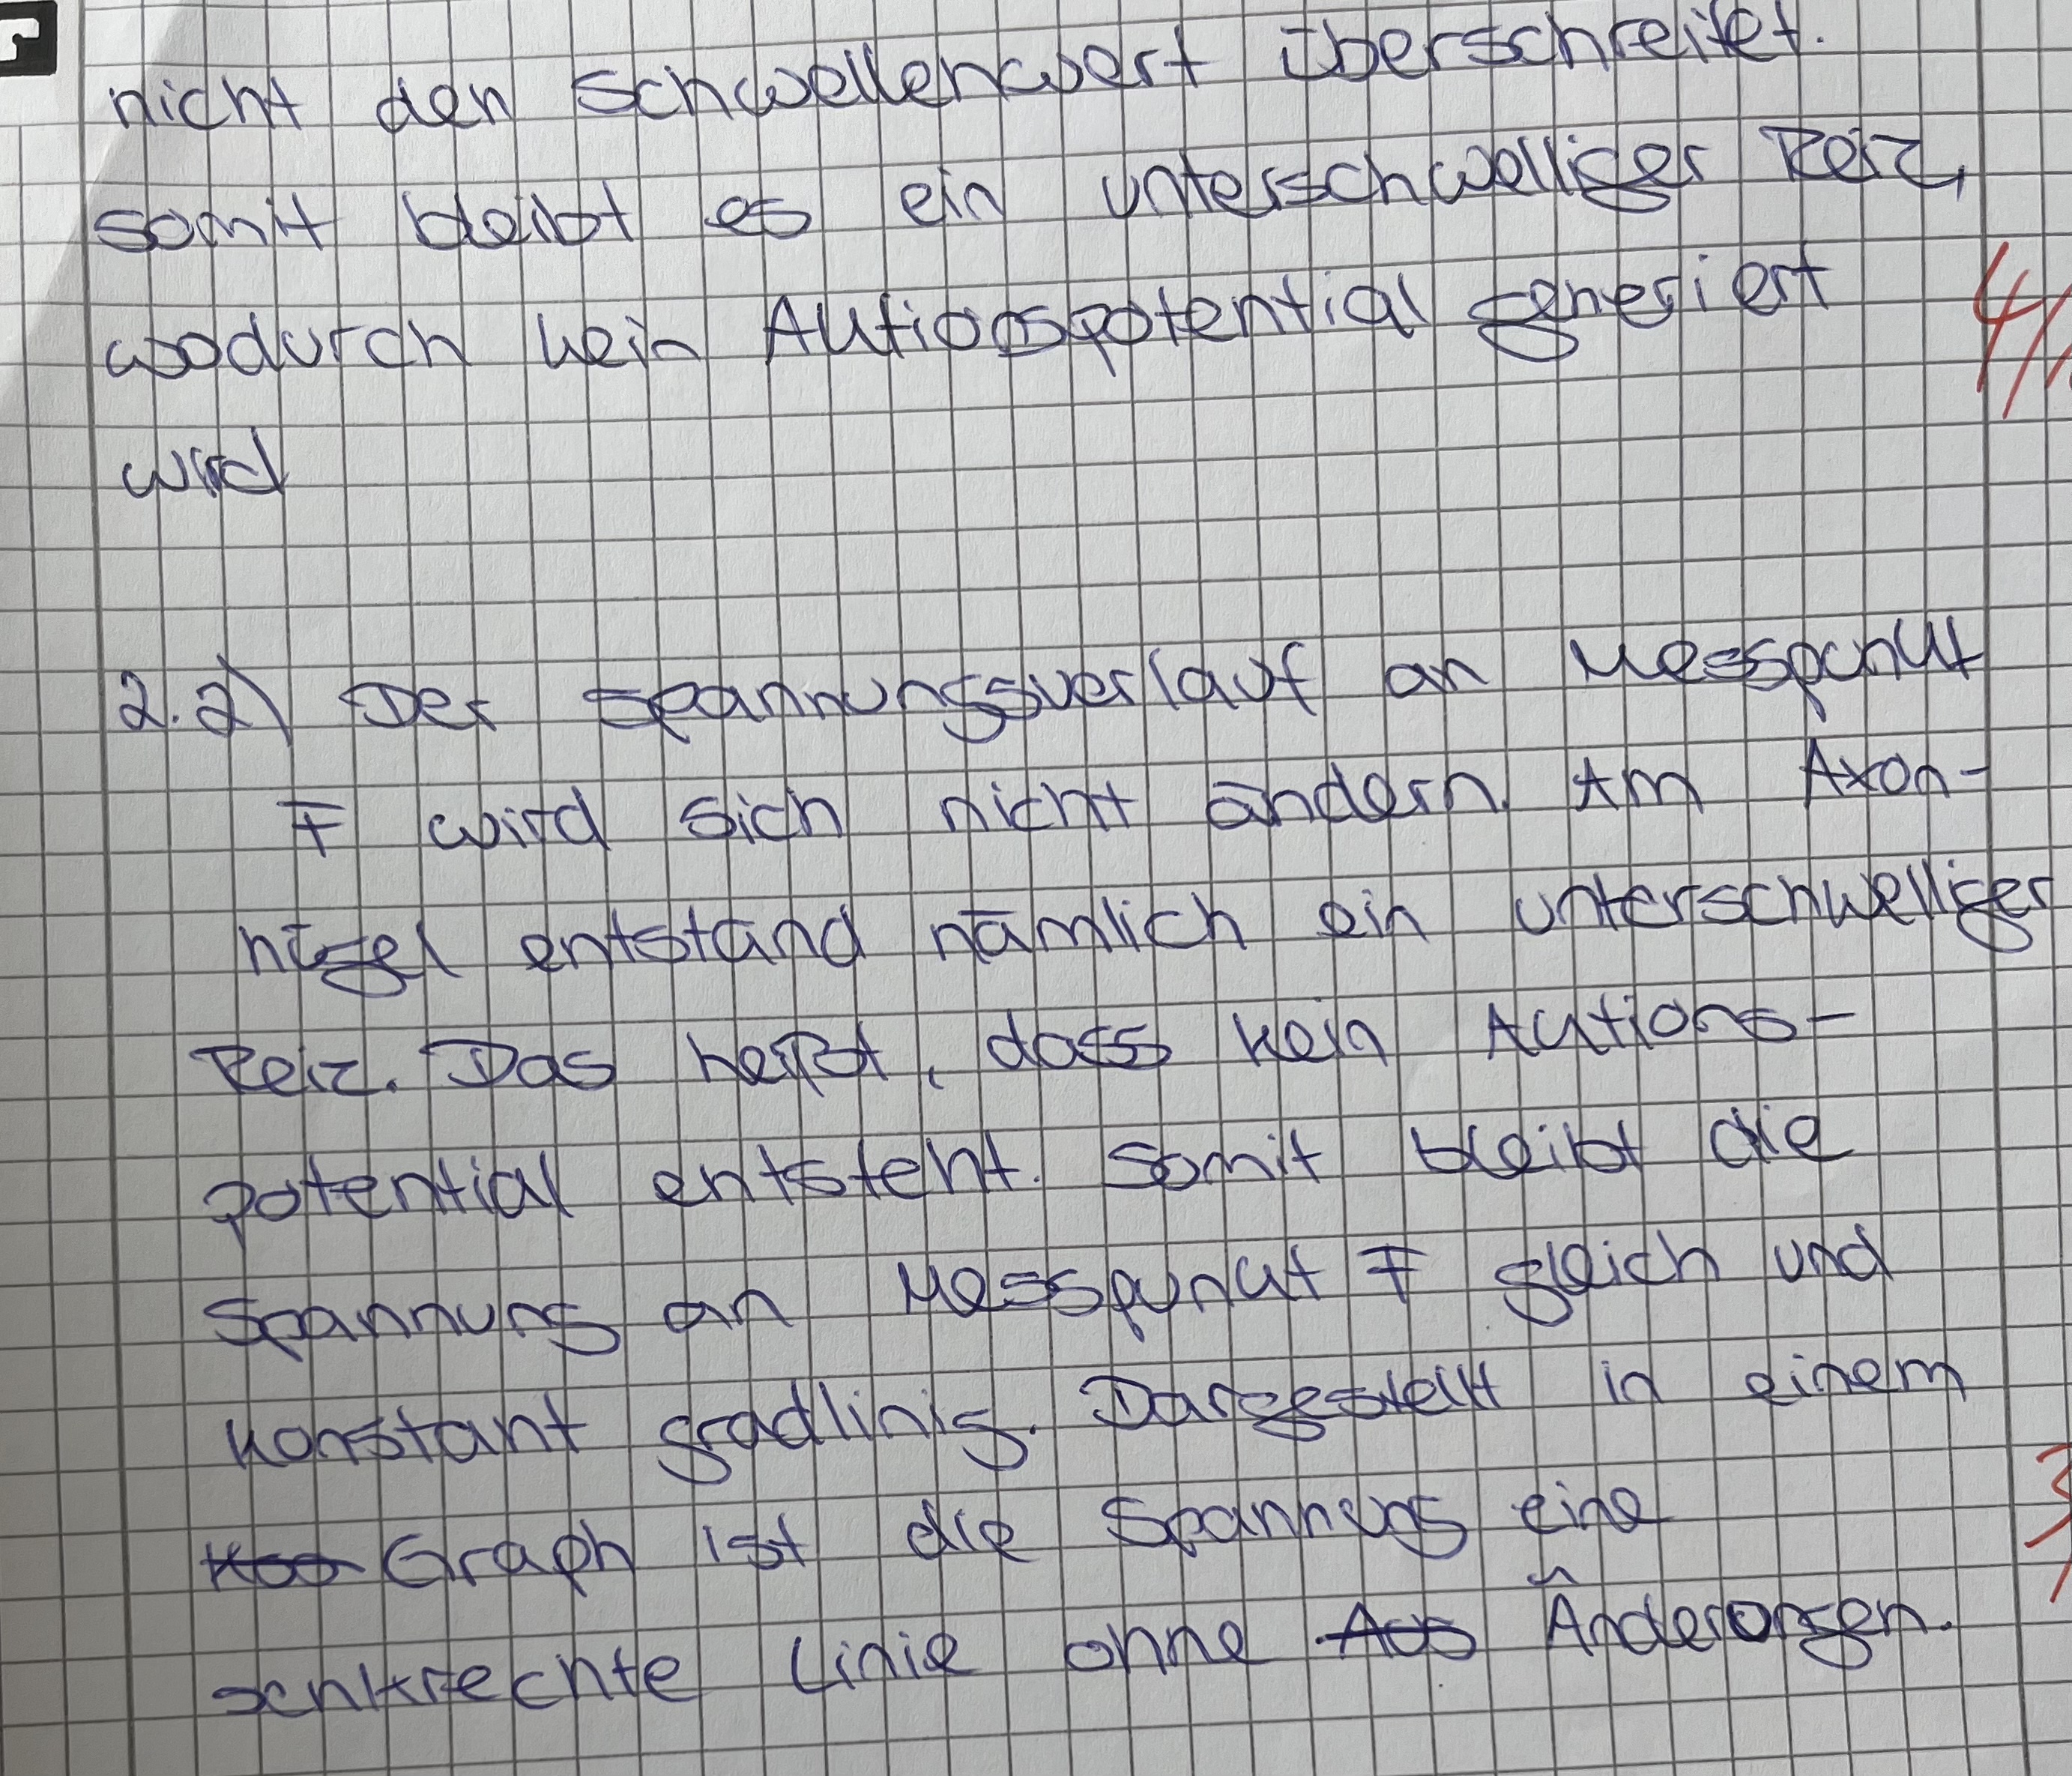 nicht den Schwellenwert überschreitet.
somit bleibt es ein unterschwelliger Reiz,
wodurch kein Aktionspotential generiert
wird
4/
2.2) Der Spannungsverlauf an Messpunkt
F wird sich nicht ändern. Am Axon-
hügel entstand nämlich ein unterschwelliger
Reiz. Das heißt, dass kein Aktions-
potential entsteht. Somit bleibt die
Spannung an Messpunkt F gleich und
konstant gradlinig. Dargestellt in einem
Graph ist die Spannung eine
senkrechte Linie ohne Änderungen.
3